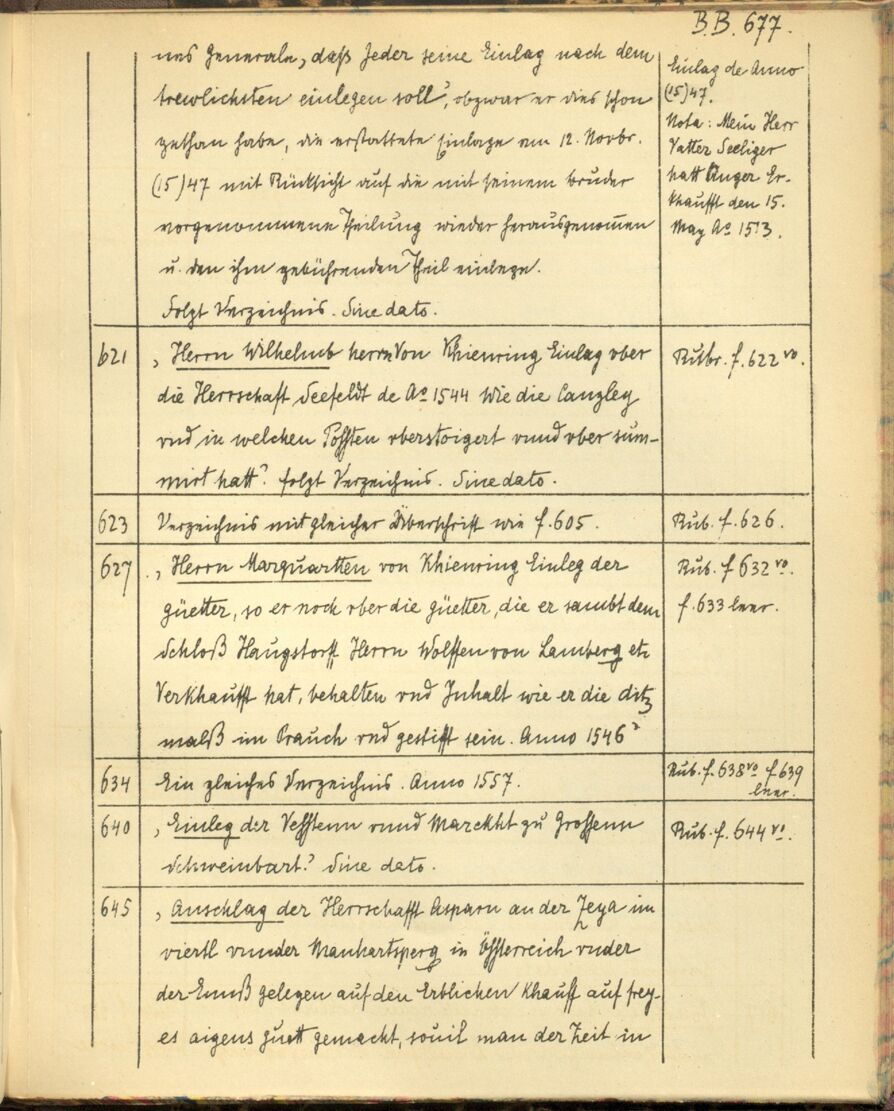 B.B. 677.
nes Generaln, daß Jeder seine Einlag nach dem
trewlichsten einlegen soll", obzwar er dies schon
gethan habe, die erstattete Einlage am 12. Novbr.
(15)47 mit Rücksicht auf die mit seinem bruder
vorgenommene Theilung wieder herausgenom̅en
u. den ihm gebührenden Theil einlege.
Folgt Verzeichnis. Sine dato.
Einlag de Anno
(15)47.
Nota: Mein Herr
Vatter Seeliger
hatt Anger Er-
khaufft den 15.
May Ao 1513.
621
„Herrn Wilhelmb herrn Von Khienring Einlag vber
die Herrschaft Seefeldt de Ao 1544 Wie die Canzley
vnd in welchen Possten vberstaigert vnnd vber sum-
mirt hatt". folgt Verzeichnis. Sine dato.
Rubr. f. 622 vo.
623
Verzeichnis mit gleicher Überschrift wie f. 605.
Rub. f. 626.
627
„Herrn Marquartten von Khienring Einleg der
güetter, so er noch vber die güetter, die er sambt dem
Schloß Haugstorff Herrn Wolffen von Lamberg etc
Verkhaufft hat, behalten vnd Inhalt wie er die ditz
malß im Prauch vnd gestifft sein. Anno 1546"
Rub. f 632 vo.
f. 633 leer.
634
Ein gleiches Verzeichnis. Anno 1557.
Rub. f. 638 vo f. 639
leer.
640
„Einleg der Vesstenn vnnd Marckht zu Grossenn
Schweinbart". Sine dato.
Rub. f. 644 vo.
645
„Anschlag der Herrschafft Asparn an der Zeya im
viertl vnnder Manhartsperg in Össterreich vnder
der Ennß gelegen auf den Erblichen Khauff auf frey-
es aigens guett gemacht, souil man der Zeit in